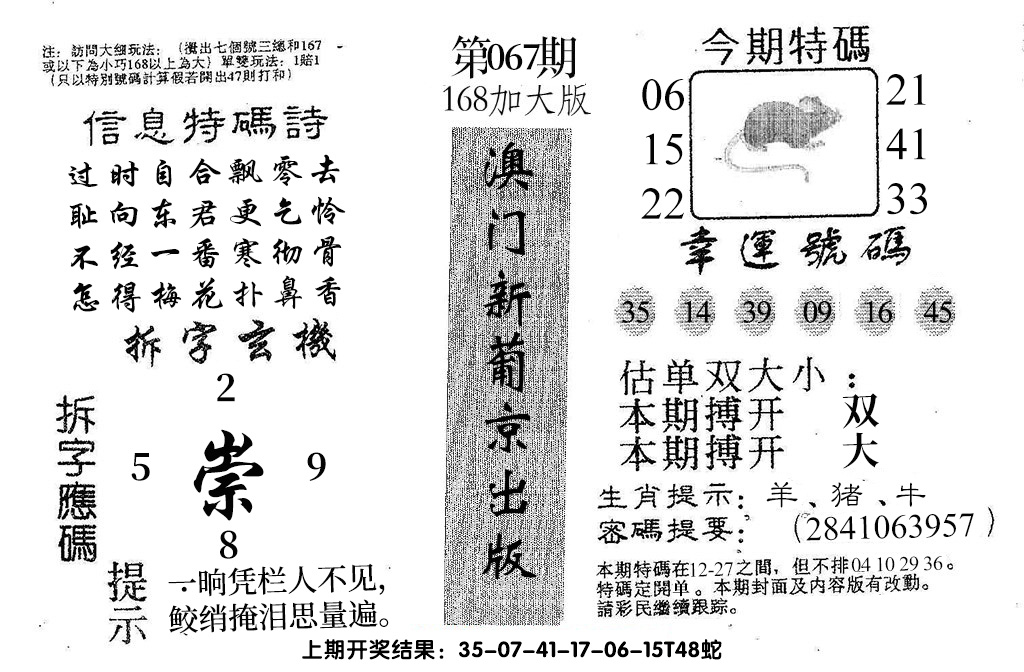 注：訪問大細玩法：（攪出七個號三總和167
或以下為小巧168以上為大）單雙玩法：1賠1
（只以特別號碼計算假若開出47則打和）
信息特碼詩
过时自合飘零去
耻向东君更乞怜
不经一番寒彻骨
怎得梅花扑鼻香
拆字玄機
拆字應碼
2
5 崇 9
8
提示
一晌凭栏人不见，
鲛绡掩泪思量遍。
第067期
168加大版
澳门新葡京出版
今期特碼
06 21
15 41
22 33
幸運號碼
35 14 39 09 16 45
估单双大小：
本期搏开 双
本期搏开 大
生肖提示：羊、猪、牛
密碼提要：（2841063957）
本期特碼在12-27之間，但不排04 10 29 36。
特碼定開单。本期封面及内容版有改動。
請彩民繼續跟踪。
上期开奖结果：35-07-41-17-06-15T48蛇